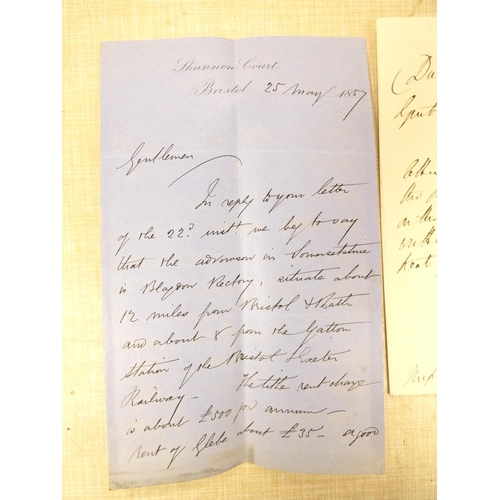 Shannon Court,
Bristol 25 May 1857
Gentlemen
In reply to your letter
of the 22d inst we beg to say
that the advowson in Somersetshire
is Blagdon Rectory, situate about
12 miles from Bristol & Bath
and about 8 from the Yatton
Station of the Bristol & Exeter
Railway – The tithe rent charge
is about £500 per annum –
rent of Glebe about £35 – a good
(Du
Gent
the
on the